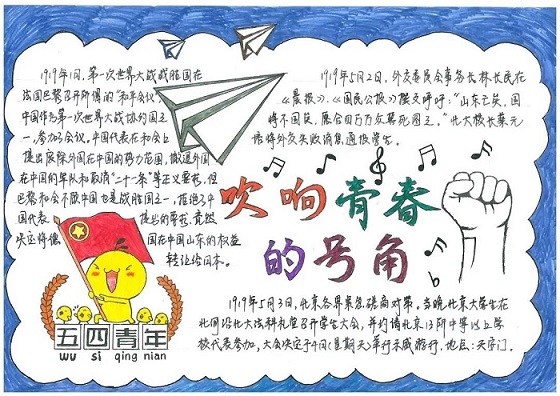 1919年1月,第一次世界大战战胜国在
法国巴黎召开所谓的“和平会议”,
中国作为第一次世界大战协约国之
一,参加了会议。中国代表在和会上
提出废除外国在中国的势力范围、撤退外国
在中国的军队和取消“二十一条”等正义要求,但
巴黎和会不顾中国也是战胜国之一,拒绝了中
国代表提出的要求,竟然
决定将德国在中国山东的权益
转让给日本。
1919年5月2日,外交委员会事务长林长民在
《晨报》、《国民公报》撰文呼吁:“山东亡矣,国
将不国矣,愿合四万万众誓死图之。”北大校长蔡元
培将外交失败消息通报学生。
吹响青春
的号角
五四青年
wu si qing nian
1919年5月3日,北京各界紧急磋商对策。当晚北京大学生在
北河沿北大法科礼堂召开学生大会,并约请北京13所中等以上学
校代表参加,大会决定于4日(星期天)举行示威游行。地点:天安门。